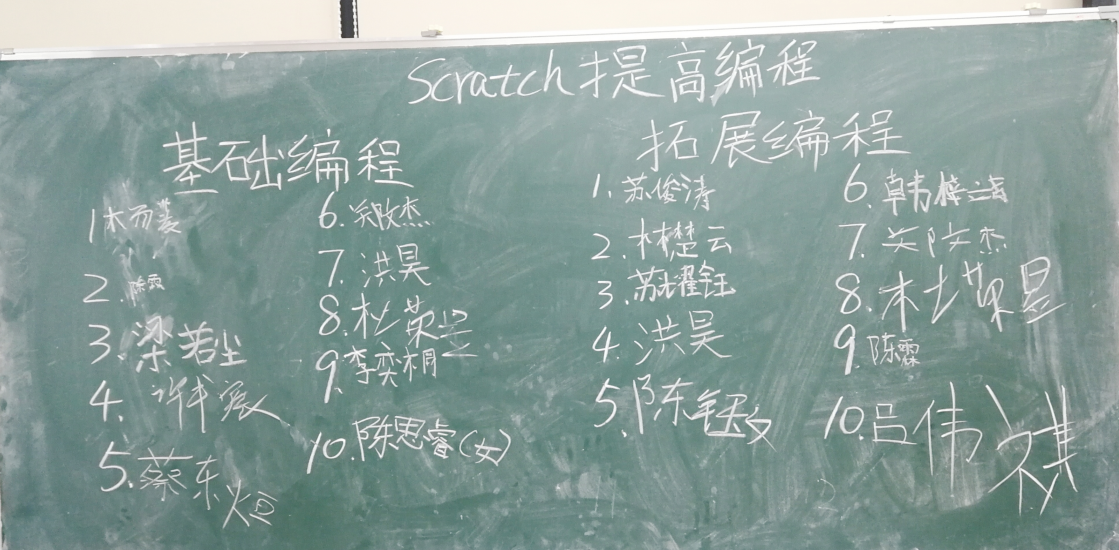 Scratch提高编程
基础编程
1
2.陈霖
3.梁若尘
4.许
5.蔡东烜
6.关政杰
7.洪昊
8.杜英昱
9.李奕桐
10.陈思睿(女)
拓展编程
1.苏俊涛
2.林楚云
3.苏耀钰
4.洪昊
5.陈
6.韩
7.关政杰
8.杜英昱
9.陈霖
10.吕伟祺